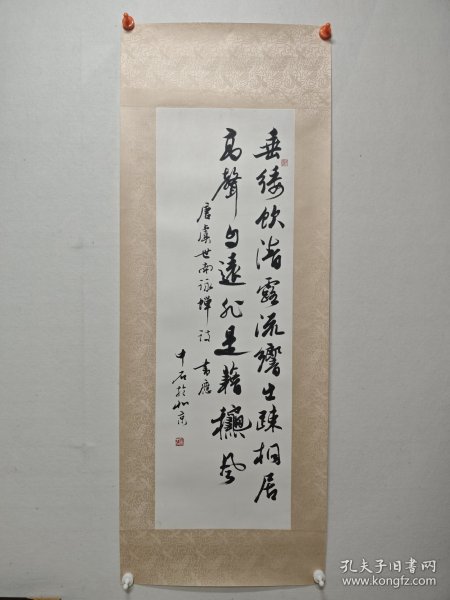 垂緌飲清露流響出疎桐居
高聲自遠非是藉秋風
唐虞世南詠蟬詩 書應
中石於北京
孔夫子旧书网
www.kongfz.com